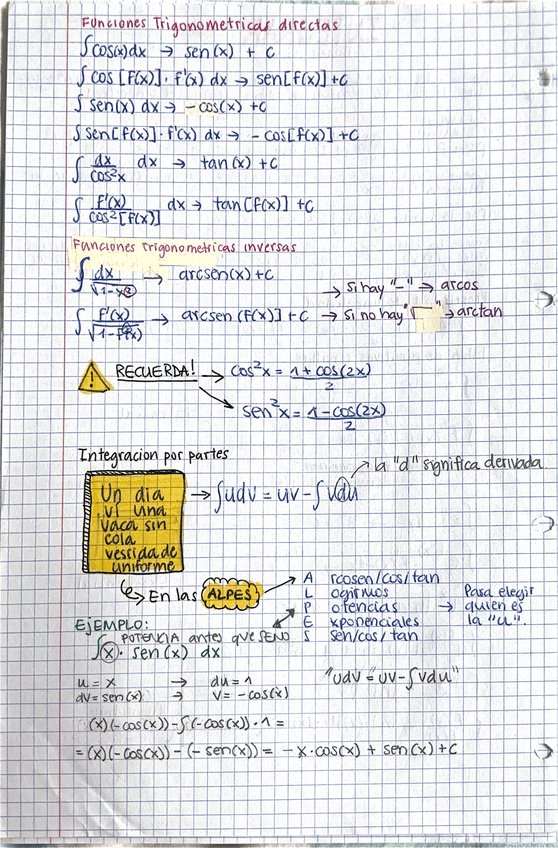 Funciones Trigonometricas directas
∫cos(x)dx → sen(x) + c
∫cos[f(x)]·f'(x) dx → sen[f(x)]+c
∫sen(x) dx → -cos(x) +c
∫sen[f(x)]·f'(x) dx → -cos[f(x)]+c
∫ dx/cos²x dx → tan(x) +c
∫ f'(x)/cos²[f(x)] dx → tan[f(x)] +c
Funciones trigonometricas inversas
∫ dx/√(1-x²) → arcsen(x)+c
→ si hay "-" → arcos
∫ f'(x)/√(1-f²(x)) → arcsen(f(x)]+c → si no hay "√" → arctan
! RECUERDA! → cos²x = 1+cos(2x)/2
sen²x = 1-cos(2x)/2
Integracion por partes
la "d" significa derivada
Un dia
vi una
vaca sin
cola
vestida de
uniforme
→ ∫udv = uv-∫vdu
En las ALPES
A rcosen/cos/tan
L ogirmos
P otencias
E xponenciales
S sen/cos/tan
→ Pasa elegir
quien es
la "u".
EJEMPLO:
POTENCIA antes que SENO
∫x·sen(x) dx
u = x → du = 1
dv = sen(x) → v = -cos(x)
"udv = uv-∫vdu"
(x)(-cos(x))-∫(-cos(x))·1 =
= (x)(-cos(x))-(-sen(x)) = -x·cos(x)+sen(x)+c